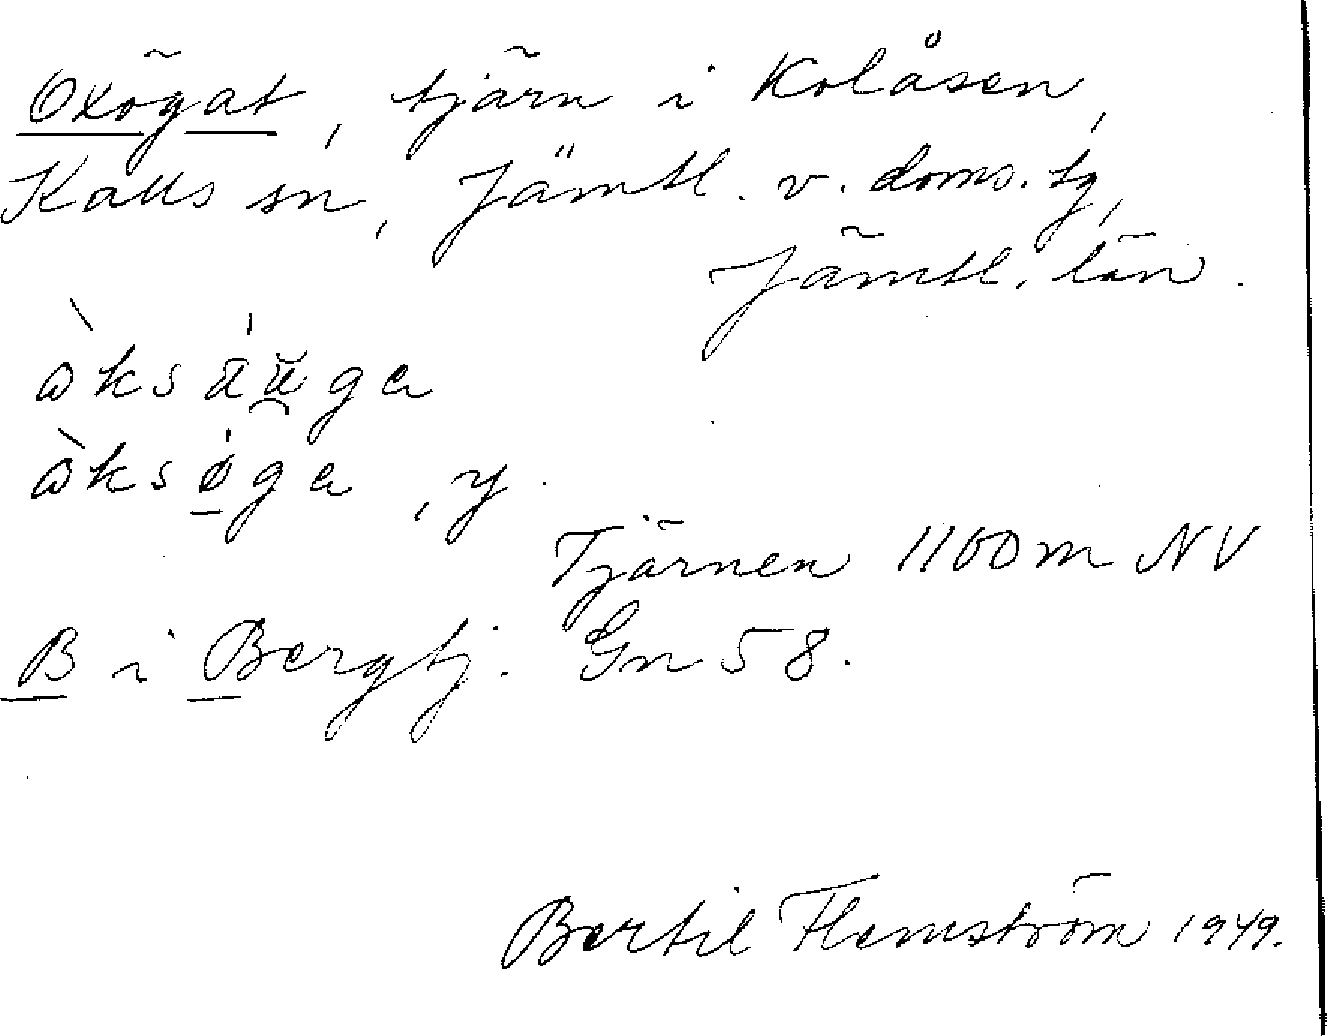 Oxögat, tjärn i Kolåsen,
Kalls sn, Jämtl. v. doms. tg,
Jämtl. län.
òksáu̯ga
òksǿga, y
Tjärnen 1100 m NV
B i Bergtj. Gn 58.
Bertil Flemström 1949.